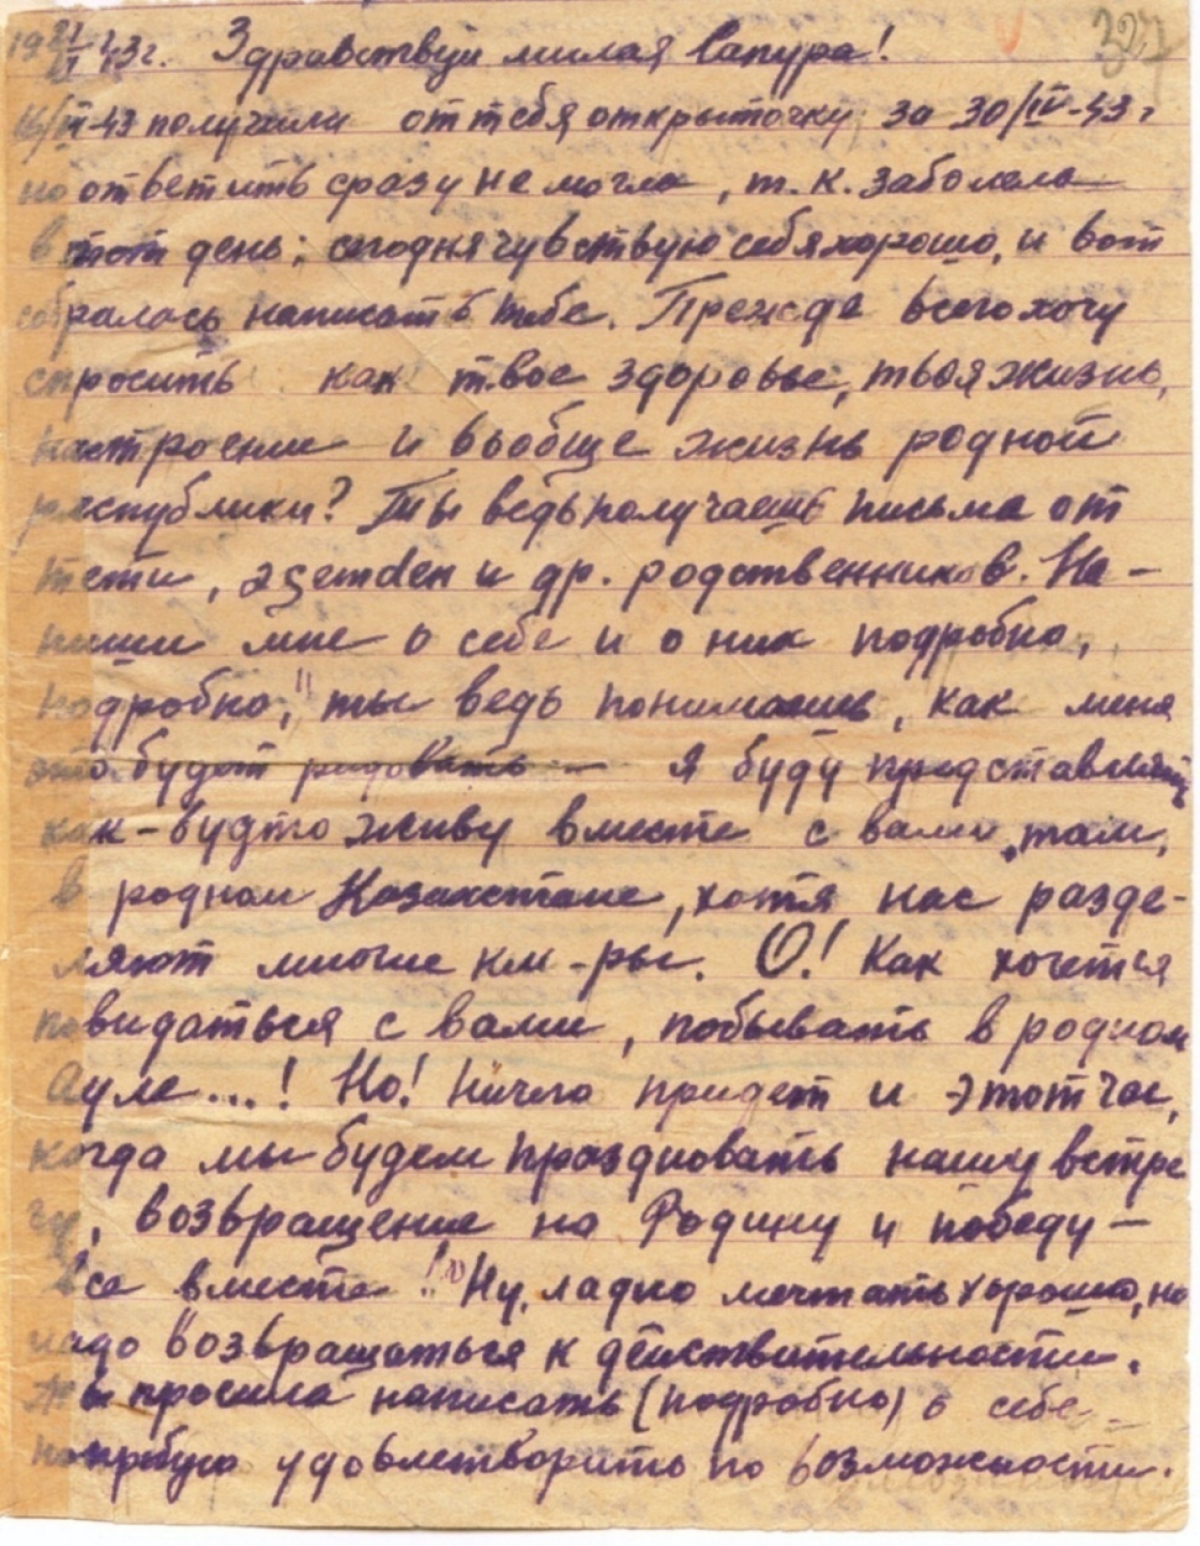 19 21/VI 43г. Здравствуй милая Сапура! 327
16/VI-43 получила от тебя открыточку за 30/IV-43 г
но ответить сразу не могла, т. к. заболела
в тот день; сегодня чувствую себя хорошо, и вот
собралась написать тебе. Прежде всего хочу
спросить как твое здоровье, твоя жизнь,
настроение и вообще жизнь родной
республики? Ты ведь получаешь письма от
тети, и др. родственников. На-
пиши мне о себе и о них подробно,
подробно, ты ведь понимаешь, как меня
это будет радовать — я буду представлять
как-будто живу вместе с вами, там,
в родном Казахстане, хотя нас разде-
ляют многие км-ры. О! Как хочется
повидаться с вами, побывать в родном
Ауле...! Но! Ничего придет и этот час,
когда мы будем праздновать нашу встре
чу, возвращение на Родину и победу —
все вместе!! Ну, ладно мечтать хорошо, но
надо возвращаться к действительности.
Ты просила написать (подробно) о себе —
попробую удовлетворить по возможности.